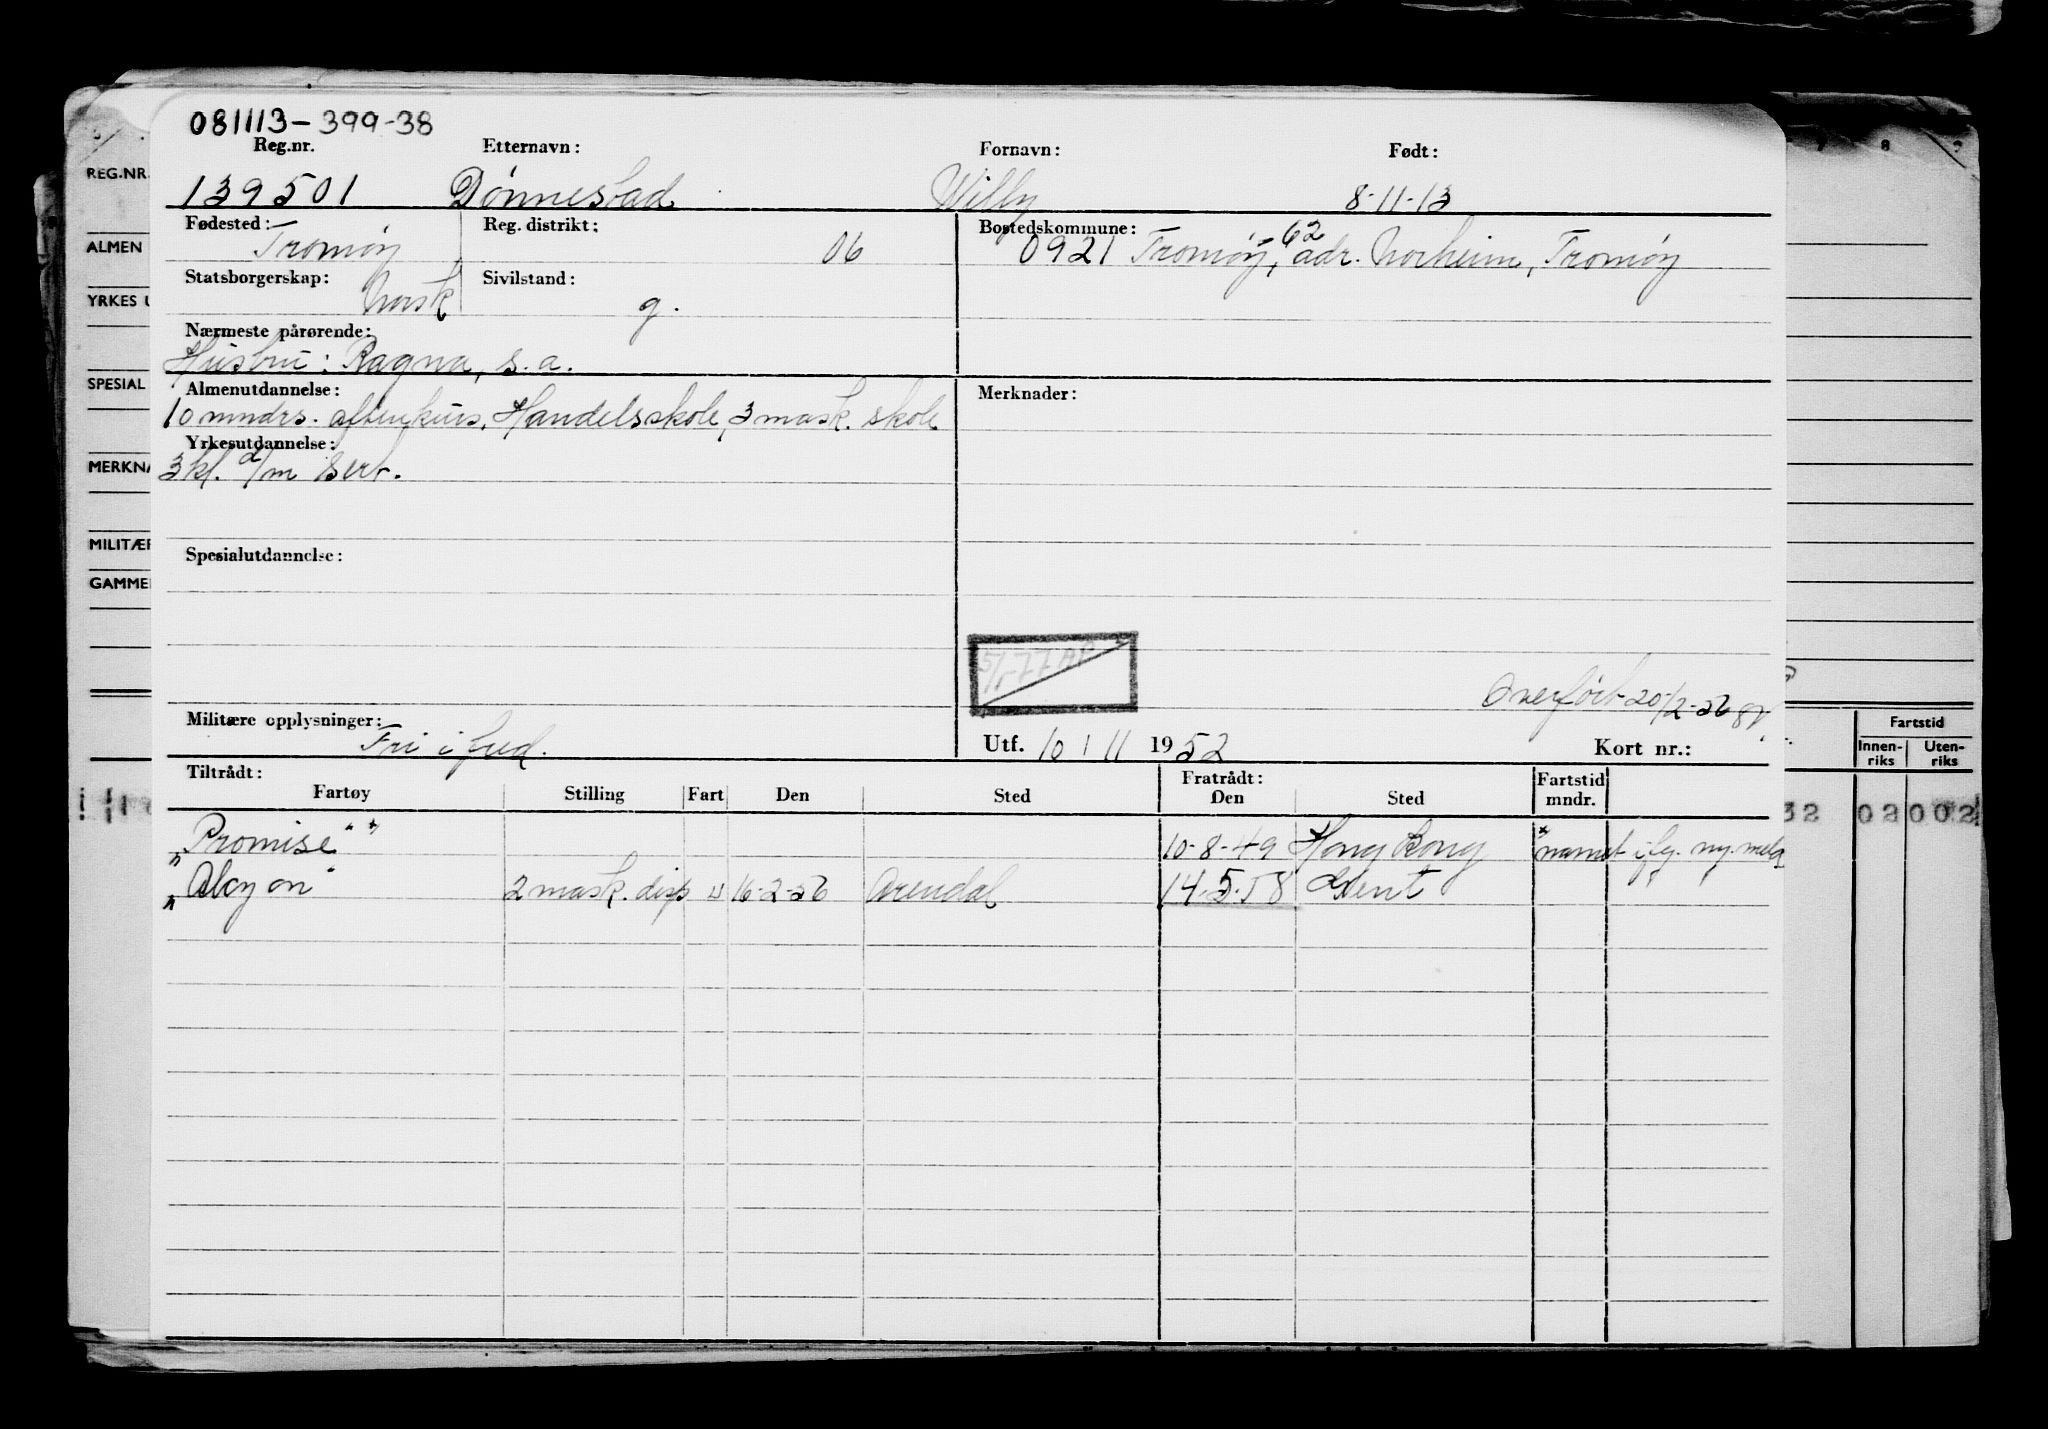 081113-399-38
Reg.nr. Etternavn: Fornavn: Født:
139501 Dønnestad Willy 8-11-13
Fødested: Reg. distrikt: Bostedskommune:
Tromøy 06 0921 Tromøy, 62 adr. Norheim, Tromøy
Statsborgerskap: Sivilstand:
Norsk g.
Nærmeste pårørende:
Hustru: Ragna, s.a.
Almenutdannelse: Merknader:
10 mndrs. aftenkurs, Handelsskole, 3 mask. skole
Yrkesutdannelse:
3 kl. d/m sert.
Spesialutdannelse:
5/1-77 AP
Overført 20/2-56
Militære opplysninger:
Fri i fred.
Utf. 10 / 11 1952 Kort nr.:
Tiltrådt: Fratrådt: Fartstid
Fartøy Stilling Fart Den Sted Den Sted mndr.
"Promise" * 10-8-49 Hong Kong * navnet iflg. ny. meld
"Alcyon" 2 mask. disp u 16-2-56 Arendal 14.5.58 Gent
REG.NR.
ALMEN
YRKES U
SPESIAL
MERKNA
MILITÆR
GAMMEL
8 9
Fartstid
Innen-riks Uten-riks
32 02 002